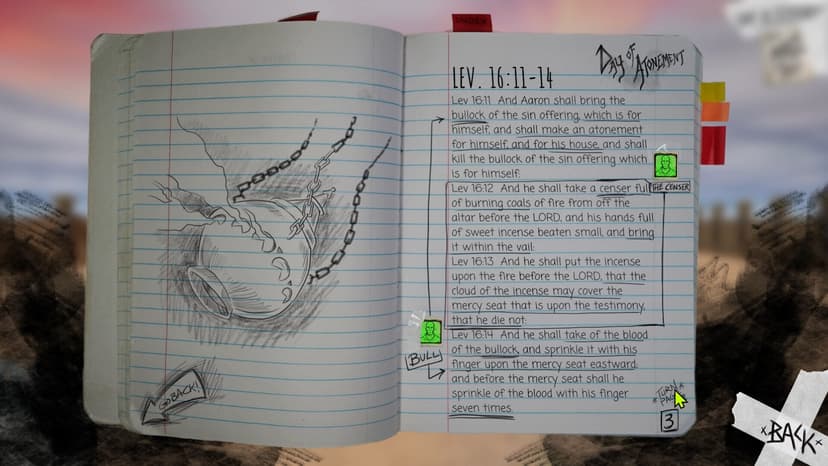 INDEX
DAY OF ATONEMENT
LEV. 16:11-14
Lev 16:11 And Aaron shall bring the
bullock of the sin offering, which is for
himself, and shall make an atonement
for himself, and for his house, and shall
kill the bullock of the sin offering which
is for himself:
Lev 16:12 And he shall take a censer full
THE CENSER
of burning coals of fire from off the
altar before the LORD, and his hands full
of sweet incense beaten small, and bring
it within the vail:
Lev 16:13 And he shall put the incense
upon the fire before the LORD, that the
cloud of the incense may cover the
mercy seat that is upon the testimony,
that he die not:
Lev 16:14 And he shall take of the blood
of the bullock, and sprinkle it with his
BULL
finger upon the mercy seat eastward;
and before the mercy seat shall he
sprinkle of the blood with his finger
seven times.
GO BACK!
TURN
PAGE
3
BACK